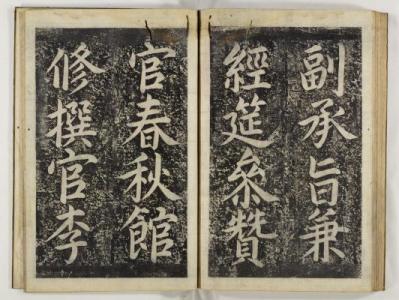 副承旨兼
經筵叅贊
官春秋館
修撰官李